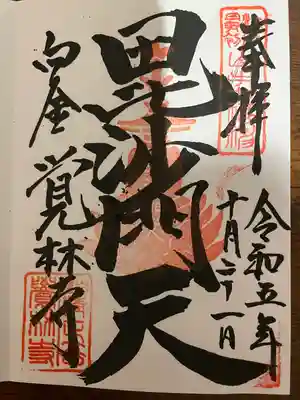 奉拝
令和五年
十月二十一日
毘沙門天
白金 覚林寺